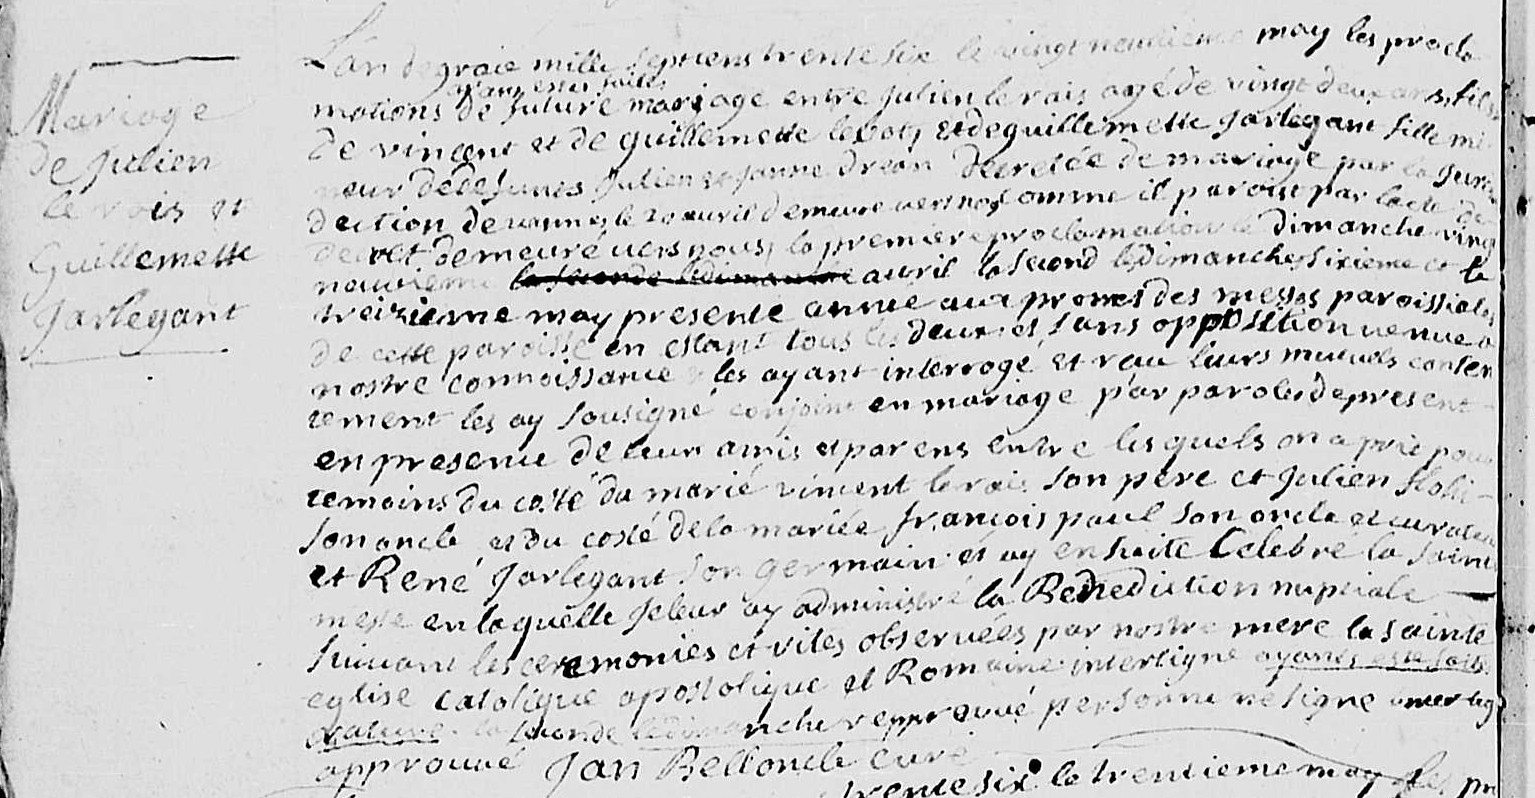 Mariage
de Julien
le rais et
Guillemette
Jarlegant
L'an de graie mille septcens trente six le vingt neuvieme may les procla
ayans estés faittes
mations de future mariage entre Julien le rais agé de vingt deux ans fils
de vincent et de guillemette et de guillemette Jarlegant fille mi
neur de defunts Julien et Janne drean decretée de mariage par la Juris
diction de vannes le 20 avril demeure vers nos comme il paroist par lacte de
decret demeuré vers nous, la premiere proclamation le dimanche vingt
neuvieme la seconde le dimanche avril la seconde le dimanche sixieme et le
treizieme may presente annee aux prones des messes paroissiales
de cette paroisse en estant tous les deux et sans oppposition venue a
nostre connoissance les ayant interrogé et reçu leurs mutuels consen
tement les ay sousigné conjoint en mariage par paroles de present
en presence de leurs amis et parens entre lesquels on a prié pour
temoins du costé du marié vincent le rais son pere et Julien
son oncle et du costé de la mariée françois paul son oncle et curateur
et René Jarlegant son germain et ay ensuite Celebré la sainte
messe en laquelle je leur ay administré la Benediction nuptiale
suivant les ceremonies et rites observées par nostre mere la sainte
eglise catolique apostolique et Romaine interligne ayants esté faitte
rature la seconde le dimanche repprouvé personne ne signe interlig
approuvé Jan Belloncle curé
trente six le trentieme may les pr